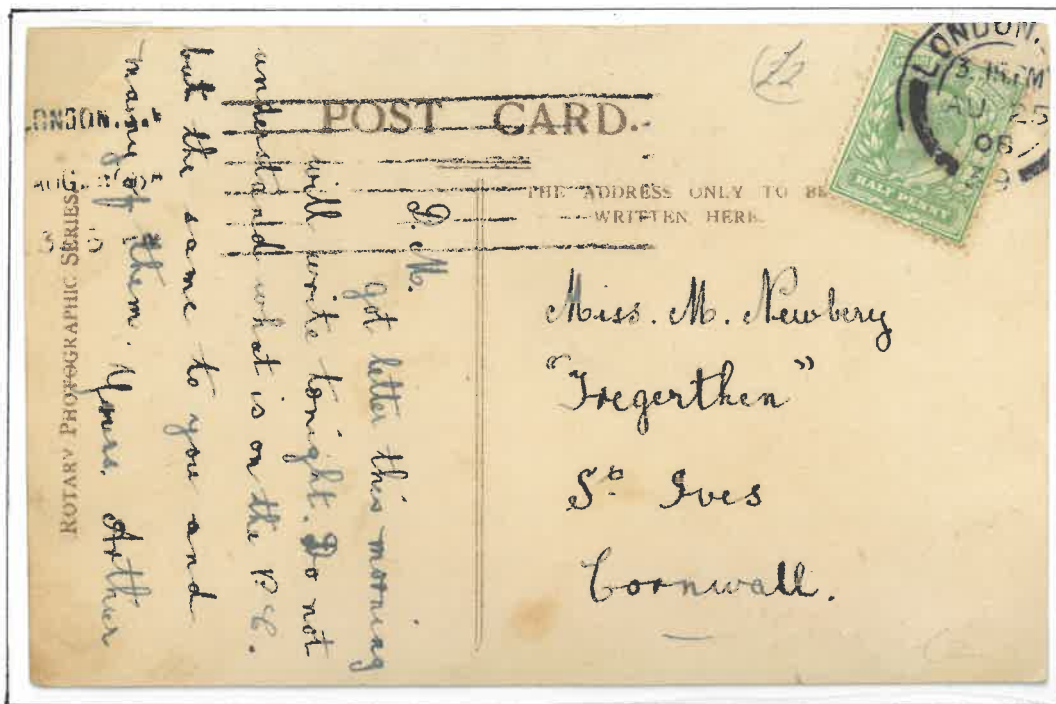 POST CARD.
THE ADDRESS ONLY TO BE
WRITTEN HERE.
£2
LONDON.
3.15 PM
AU 25
06
HALF PENNY
LONDON.
AUG.
ROTARY PHOTOGRAPHIC SERIES.
D. M.
Got letter this morning
will write tonight. Do not
understand what is on the P.C.
but the same to you and
many of them. Yours. Arther
Miss. M. Newbery
"Tregerthen"
St. Ives
Cornwall.